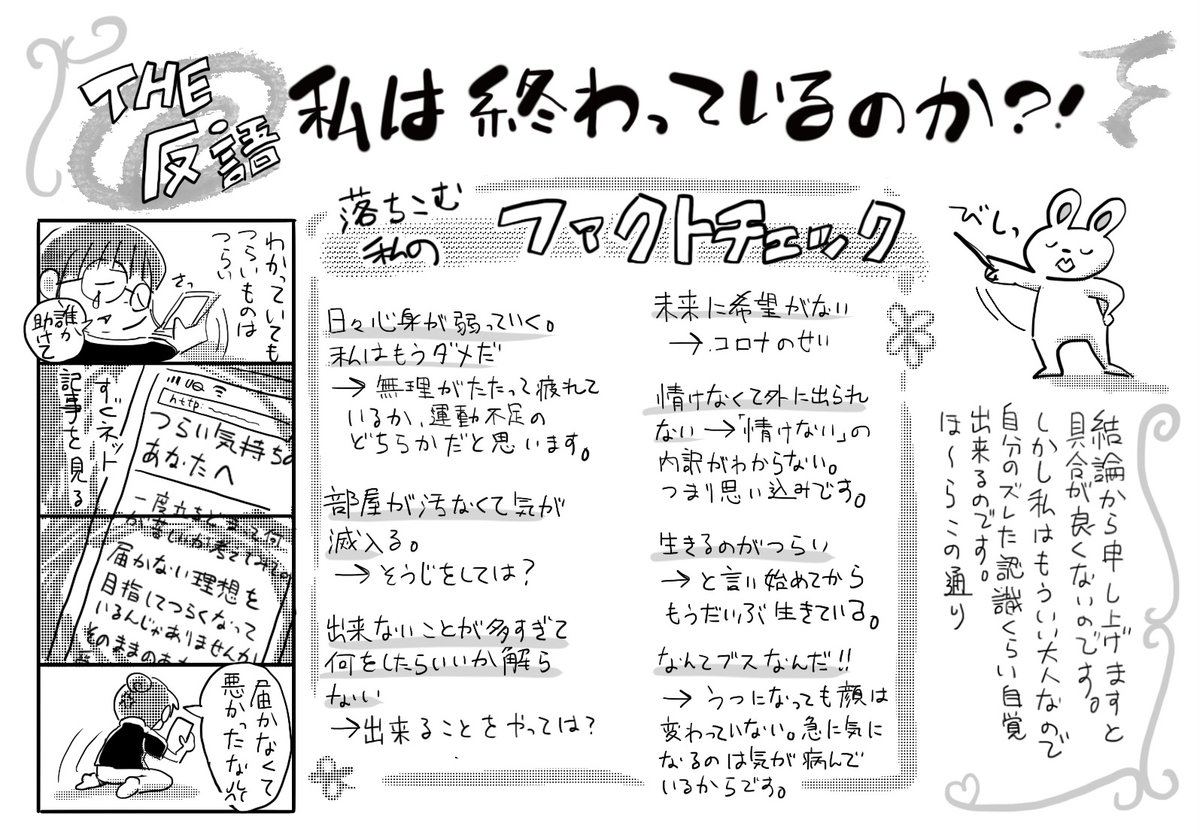 THE
反語
私は終わっているのか?!
びしっ
結論から申し上げますと
具合が良くないのです。
しかし私はもういい大人なので
自分のズレた認識くらい自覚
出来るのです。
ほ〜らこの通り
落ちこむ
私の
ファクトチェック
日々心身が弱っていく。
私はもうダメだ
→無理がたたって疲れて
いるか、運動不足の
どちらかだと思います。
部屋が汚なくて気が
滅入る。
→そうじをしては?
出来ないことが多すぎて
何をしたらいいか解ら
ない
→出来ることをやっては?
未来に希望がない
→コロナのせい
情けなくて外に出られ
ない→「情けない」の
内訳がわからない。
つまり思い込みです。
生きるのがつらい
→と言い始めてから
もうだいぶ生きている。
なんてブスなんだ!!
→うつになっても顔は
変わっていない。急に気に
なるのは気が病んで
いるからです。
わかっていても
つらいものは
つらい
さっ
誰か
助けて
すぐネット
記事を見る
http:
つらい気持ちの
あなたへ
届かない理想を
目指してつらくなって
いるんじゃありませんか
そのままのあ
届かなくて
悪かったな